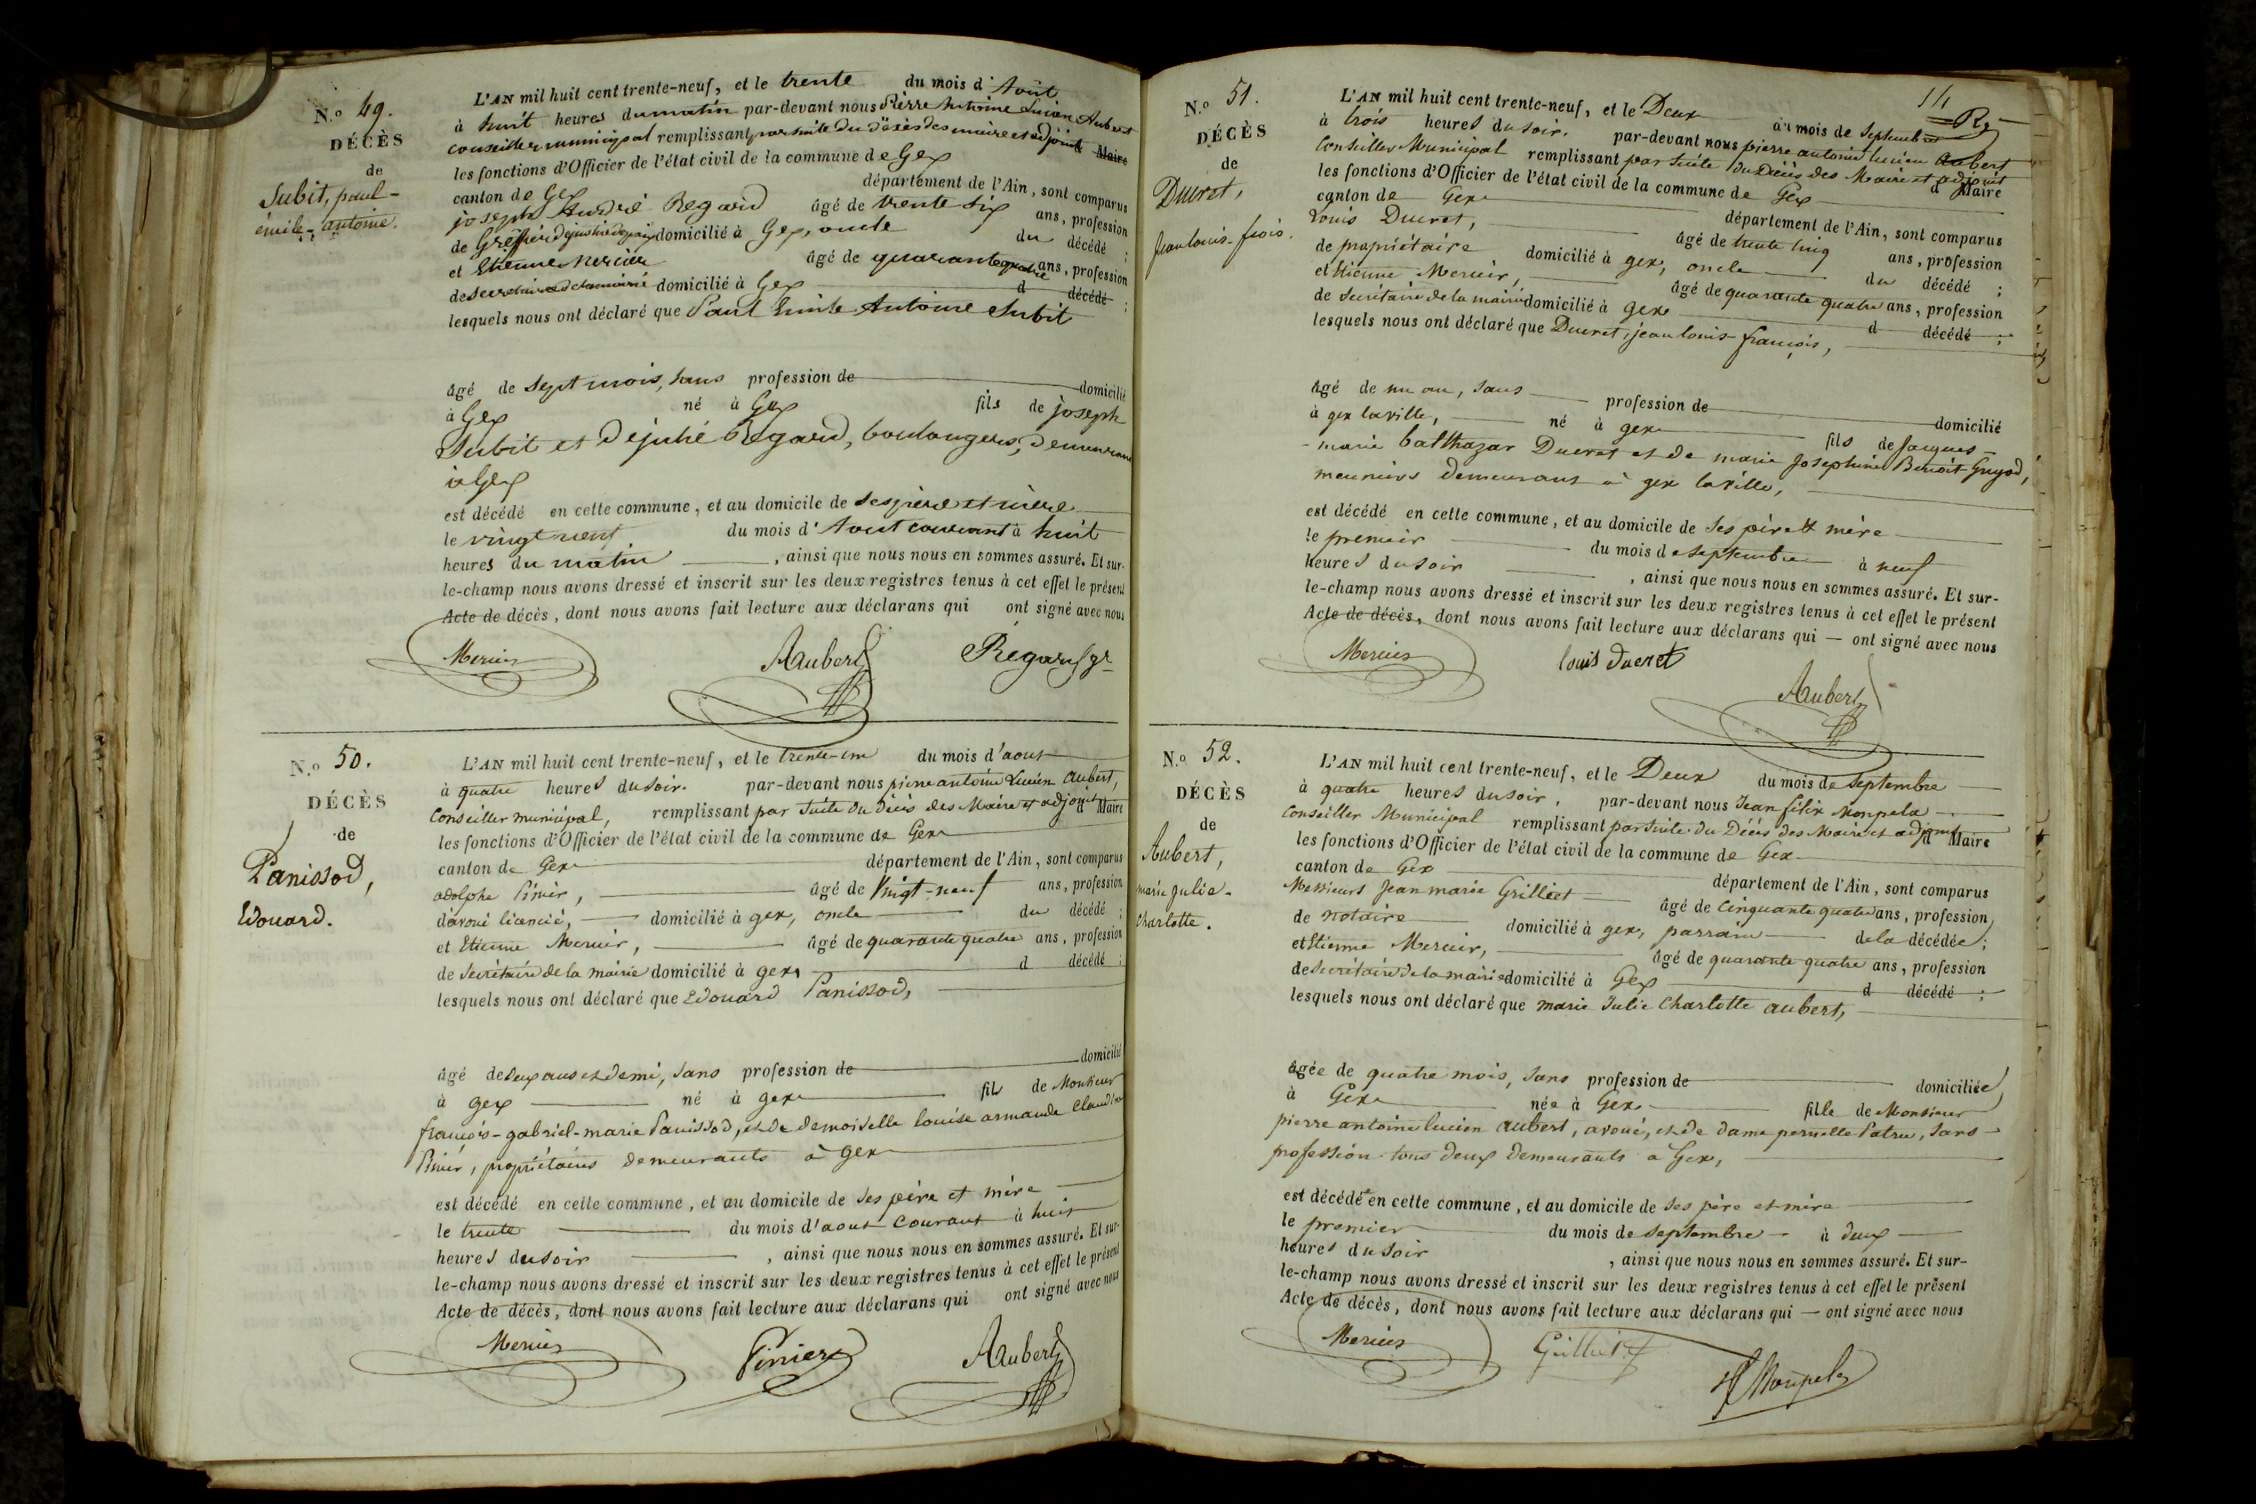 N.o 49.
DÉCÈS
de
Subit, paul-
émile-antoine.
L'AN mil huit cent trente-neuf, et le trente du mois d'Août
à huit heures du matin par-devant nous Pierre Antoine Lucien Aubert
conseiller municipal remplissant par suite du décès des maire et adjoint Maire
les fonctions d'Officier de l'état civil de la commune de Gex
canton de Gex département de l'Ain, sont comparus
joseph André Regard âgé de trente six ans, profession
de Greffier de justice de paix domicilié à Gex, oncle du décédé ;
et Etienne Mercier âgé de quarante quatre ans, profession
de secrétaire de la mairie domicilié à Gex d décédé ;
lesquels nous ont déclaré que Paul Emile Antoine Subit
âgé de sept mois, sans profession de domicilié
à Gex né à Gex fils de joseph
Subit et de julie Regard, boulangers, demeurant
à Gex
est décédé en cette commune, et au domicile de ses père et mère
le vingt neuf du mois d'Aout courant à huit
heures du matin , ainsi que nous nous en sommes assuré. Et sur-
le-champ nous avons dressé et inscrit sur les deux registres tenus à cet effet le présent
Acte de décès, dont nous avons fait lecture aux déclarans qui ont signé avec nous
Mercier AAubert Régard gr
N.o 50.
DÉCÈS
de
Panissod,
Edouard.
L'AN mil huit cent trente-neuf, et le trente-un du mois d'aout
à quatre heures du soir. par-devant nous pierre antoine Lucien Aubert,
Conseiller municipal, remplissant par suite du décès des Maire et adjoint Maire
les fonctions d'Officier de l'état civil de la commune de Gex
canton de Gex département de l'Ain, sont comparus
adolphe Pinier, âgé de Vingt-neuf ans, profession
d'avoué licencié, domicilié à gex, oncle du décédé ;
et Etienne Mercier, âgé de quarante quatre ans, profession
de Secrétaire de la mairie domicilié à gex d décédé ;
lesquels nous ont déclaré que Edouard Panissod,
âgé de deux ans et demi, sans profession de domicilié
à gex né à gex fils de Monsieur
françois-gabriel-marie Panissod, et de demoiselle louise armande Claudine
Pinier, propriétaires demeurants à gex
est décédé en cette commune, et au domicile de ses père et mère
le trente du mois d'aout courant à huit
heures du soir , ainsi que nous nous en sommes assuré. Et sur-
le-champ nous avons dressé et inscrit sur les deux registres tenus à cet effet le présent
Acte de décès, dont nous avons fait lecture aux déclarans qui ont signé avec nous
Mercier Pinier AAubert
14
N.o 51.
DÉCÈS
de
Ducret,
Jean louis-frois.
L'AN mil huit cent trente-neuf, et le Deux du mois de Septembre
à trois heures du soir. par-devant nous pierre antoine lucien Aubert
Conseiller Municipal remplissant par suite du Décès des Maire et adjoint d Maire
les fonctions d'Officier de l'état civil de la commune de Gex
canton de Gex département de l'Ain, sont comparus
Louis Ducret, âgé de trente cinq ans, profession
de propriétaire domicilié à gex, oncle du décédé ;
et Etienne Mercier, âgé de quarante quatre ans, profession
de Secrétaire de la mairie domicilié à gex d décédé ;
lesquels nous ont déclaré que Ducret, jean louis-françois,
âgé de un an, sans profession de domicilié
à gex la ville, né à gex fils de Jacques-
-marie balthazar Ducret et de marie Josephine Benoit-Guyod,
meuniers demeurant à gex la ville,
est décédé en cette commune, et au domicile de ses père et mère
le premier du mois de septembre à neuf
heures du soir , ainsi que nous nous en sommes assuré. Et sur-
le-champ nous avons dressé et inscrit sur les deux registres tenus à cet effet le présent
Acte de décès, dont nous avons fait lecture aux déclarans qui ont signé avec nous
Mercier louis ducret AAubert
N.o 52.
DÉCÈS
de
Aubert,
marie julie-
Charlotte.
L'AN mil huit cent trente-neuf, et le Deux du mois de Septembre
à quatre heures du soir, par-devant nous Jean félix Monpela
Conseiller Municipal remplissant par suite du Décès des Maire et adjoint d Maire
les fonctions d'Officier de l'état civil de la commune de Gex
canton de Gex département de l'Ain, sont comparus
Messieurs Jean marie Grilliet âgé de Cinquante quatre ans, profession
de notaire domicilié à gex, parrain de la décédée ;
et Etienne Mercier, âgé de quarante quatre ans, profession
de Secrétaire de la mairie domicilié à Gex d décédé ;
lesquels nous ont déclaré que marie Julie Charlotte aubert,
âgée de quatre mois, sans profession de domiciliée
à Gex née à Gex fille de Monsieur
pierre antoine lucien aubert, avoué, et de dame pernette Patru, sans
profession tous deux demeurants à Gex,
est décédée en cette commune, et au domicile de ses père et mère
le premier du mois de septembre à deux
heures du soir , ainsi que nous nous en sommes assuré. Et sur-
le-champ nous avons dressé et inscrit sur les deux registres tenus à cet effet le présent
Acte de décès, dont nous avons fait lecture aux déclarans qui ont signé avec nous
Mercier Grilliet Monpela